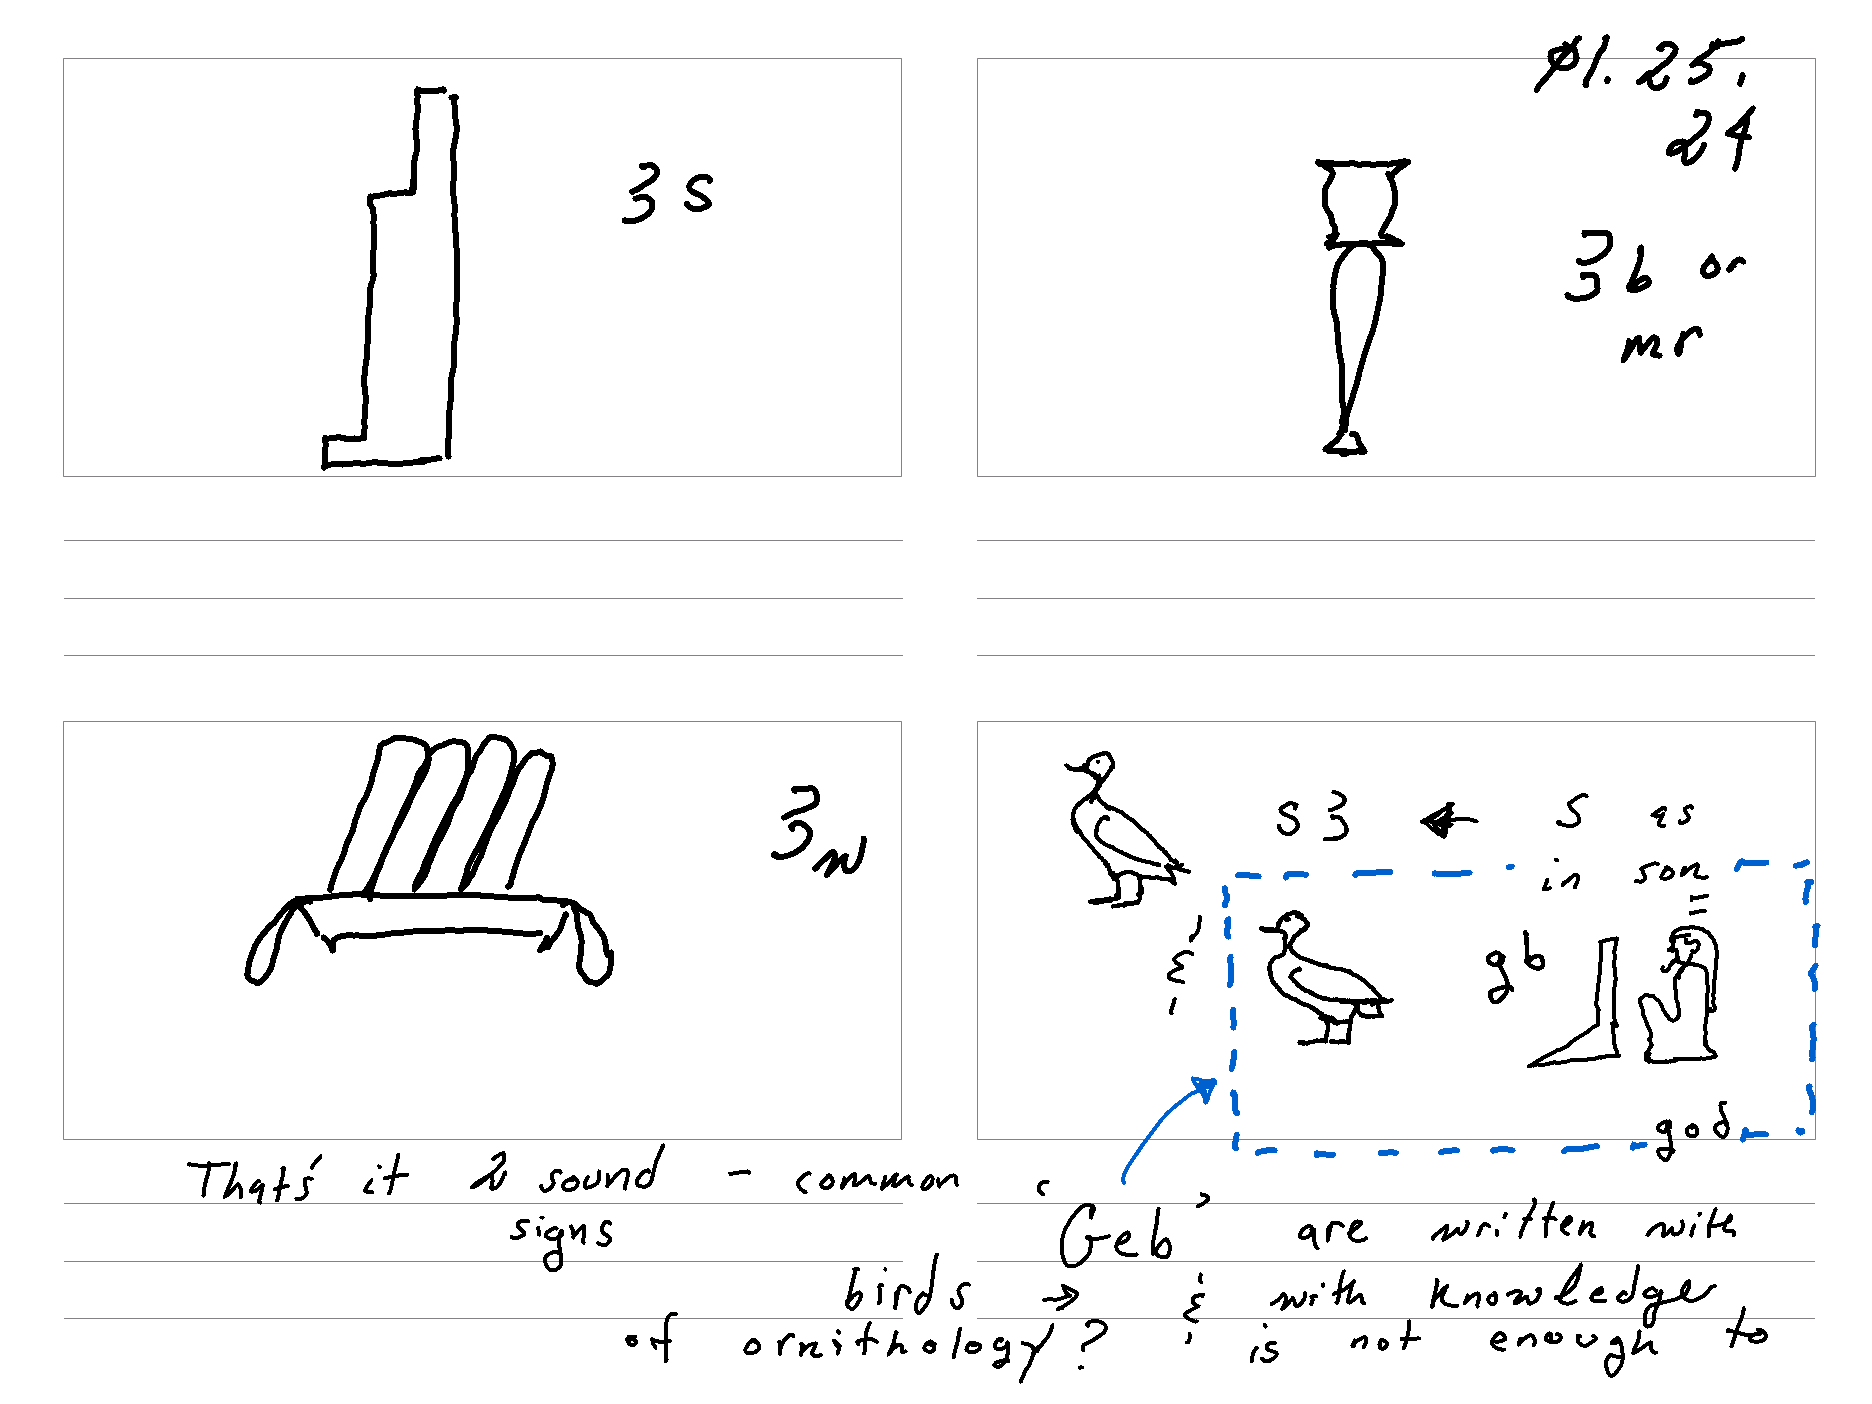 01.25.
24
3 s
3 b or
mr
3 w
s 3 ← s as
in son
&
gb
god
That's it 2 sound – common
signs
'Geb' are written with
birds → & with knowledge
of ornithology? & is not enough to